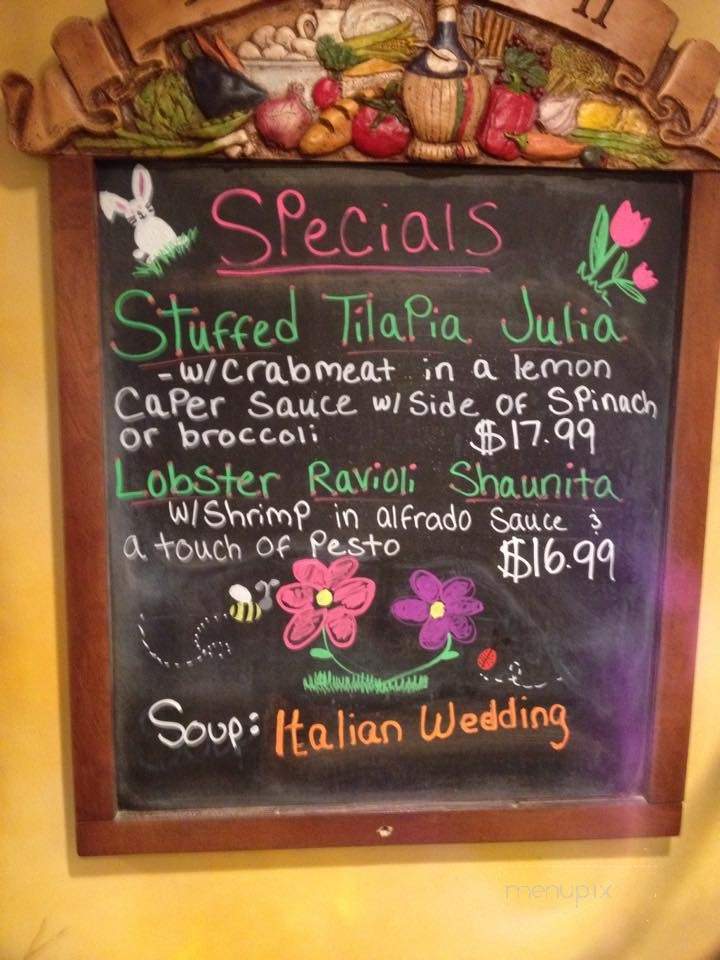 Specials
Stuffed Tilapia Julia
-w/crabmeat in a lemon
caper sauce w/side of spinach
or broccoli $17.99
Lobster Ravioli Shaunita
w/shrimp in alfrado sauce &
a touch of pesto $16.99
Soup: Italian Wedding
menupix